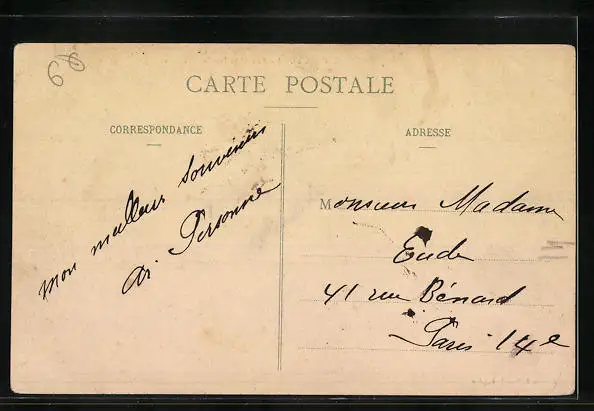 CARTE POSTALE
CORRESPONDANCE
mon meilleur souvenir
Personne
ADRESSE
Monsieur Madame
Eude
41 rue Bénard
Paris 14e